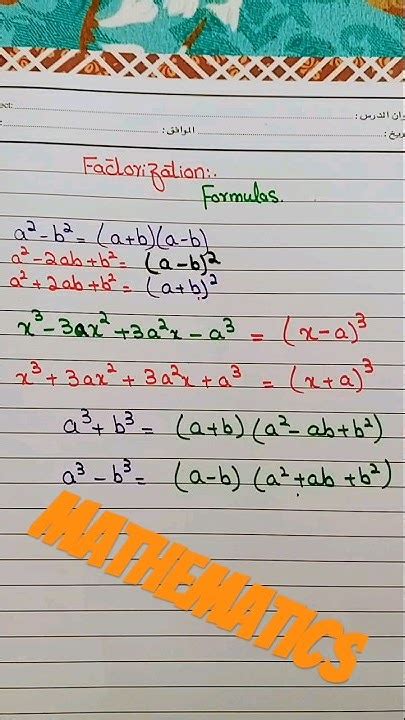 ect:
وان الدرس :
ريخ : الموافق :
Factorization:.
Formulas.
a² - b² = (a+b)(a-b)
a² - 2ab + b² = (a-b)²
a² + 2ab + b² = (a+b)²
x³ - 3ax² + 3a²x - a³ = (x-a)³
x³ + 3ax² + 3a²x + a³ = (x+a)³
a³ + b³ = (a+b) (a² - ab + b²)
a³ - b³ = (a-b) (a² + ab + b²)
MATHEMATICS